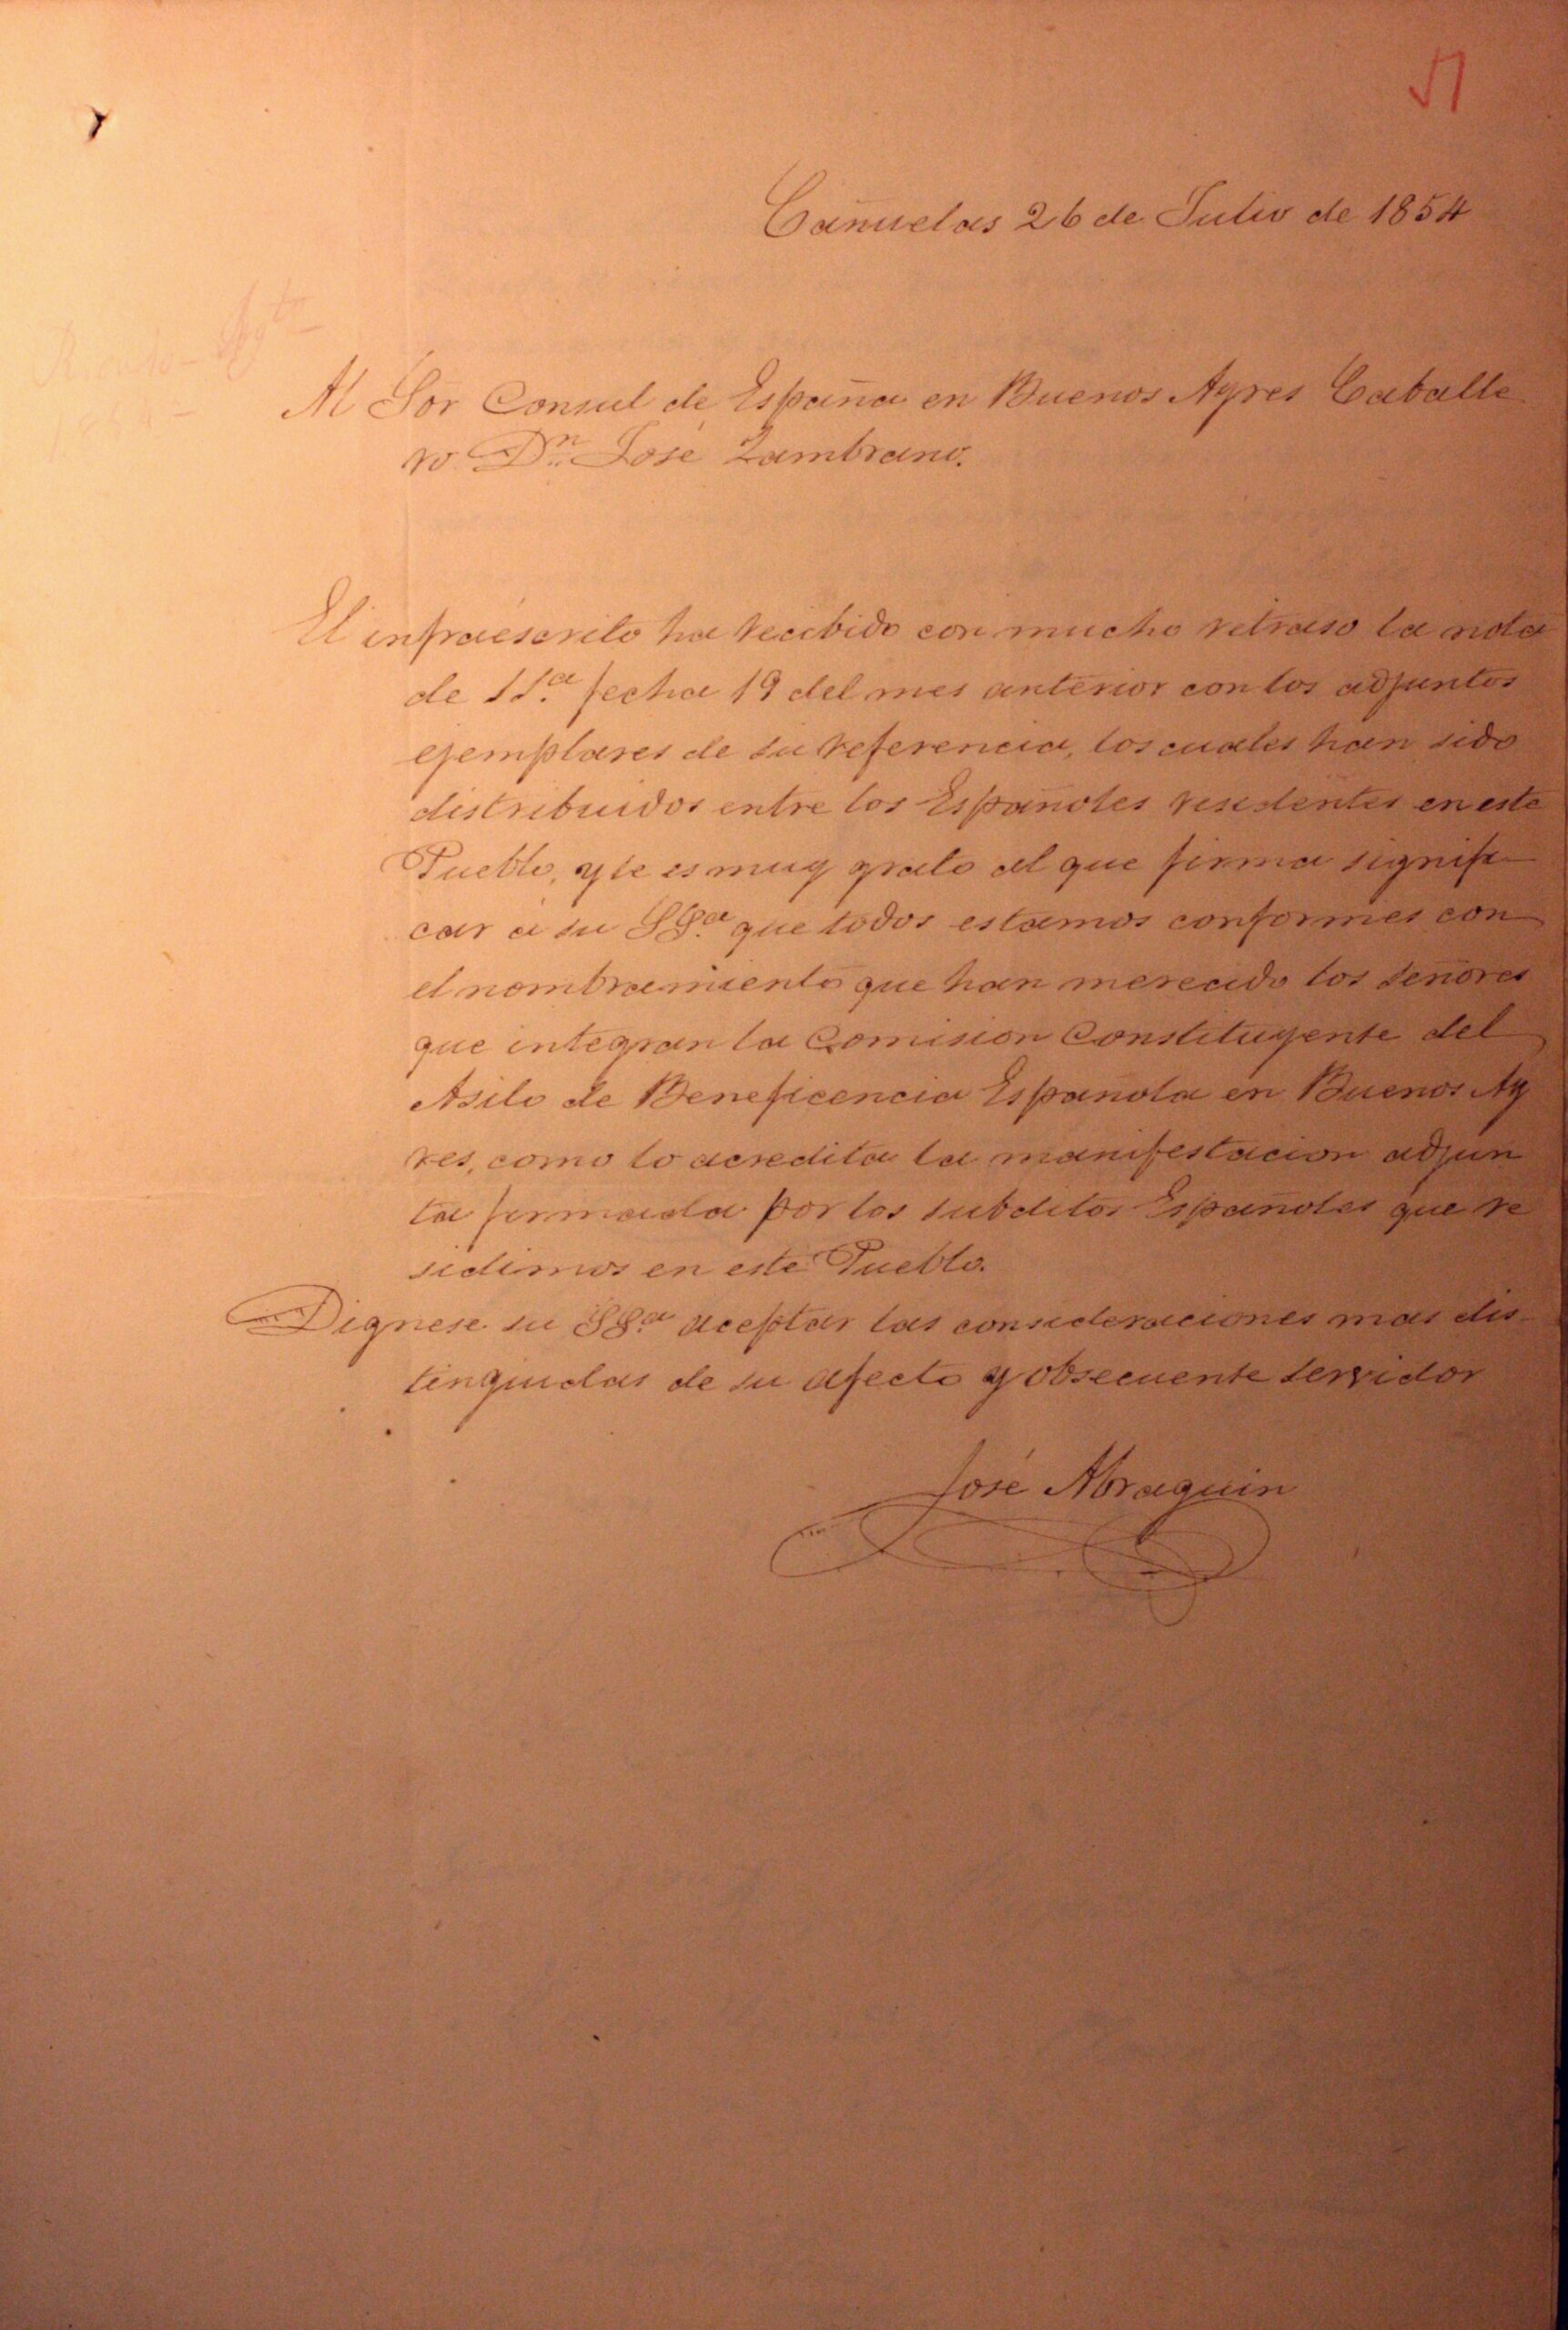 51
Cañuelas 26 de Julio de 1854
Al Sor Consul de España en Buenos Ayres Caballe
ro Dn José Zambrano.
El infraescrito ha recibido con mucho retraso la nota
de fecha 19 del mes anterior con los adjuntos
ejemplares de su referencia, los cuales han sido
distribuidos entre los Españoles residentes en este
Pueblo, y le es muy grato al que firma signifi
car á su SSa que todos estamos conformes con
el nombramiento que han merecido los señores
que integran la Comision Constituyente del
Asilo de Beneficencia Española en Buenos Ay
res, como lo acredita la manifestacion adjun
ta firmada por los subditos Españoles que re
sidimos en este Pueblo.
Dignese su SSa aceptar las consideraciones mas dis-
tinguidas de su afecto y obsecuente servidor
José